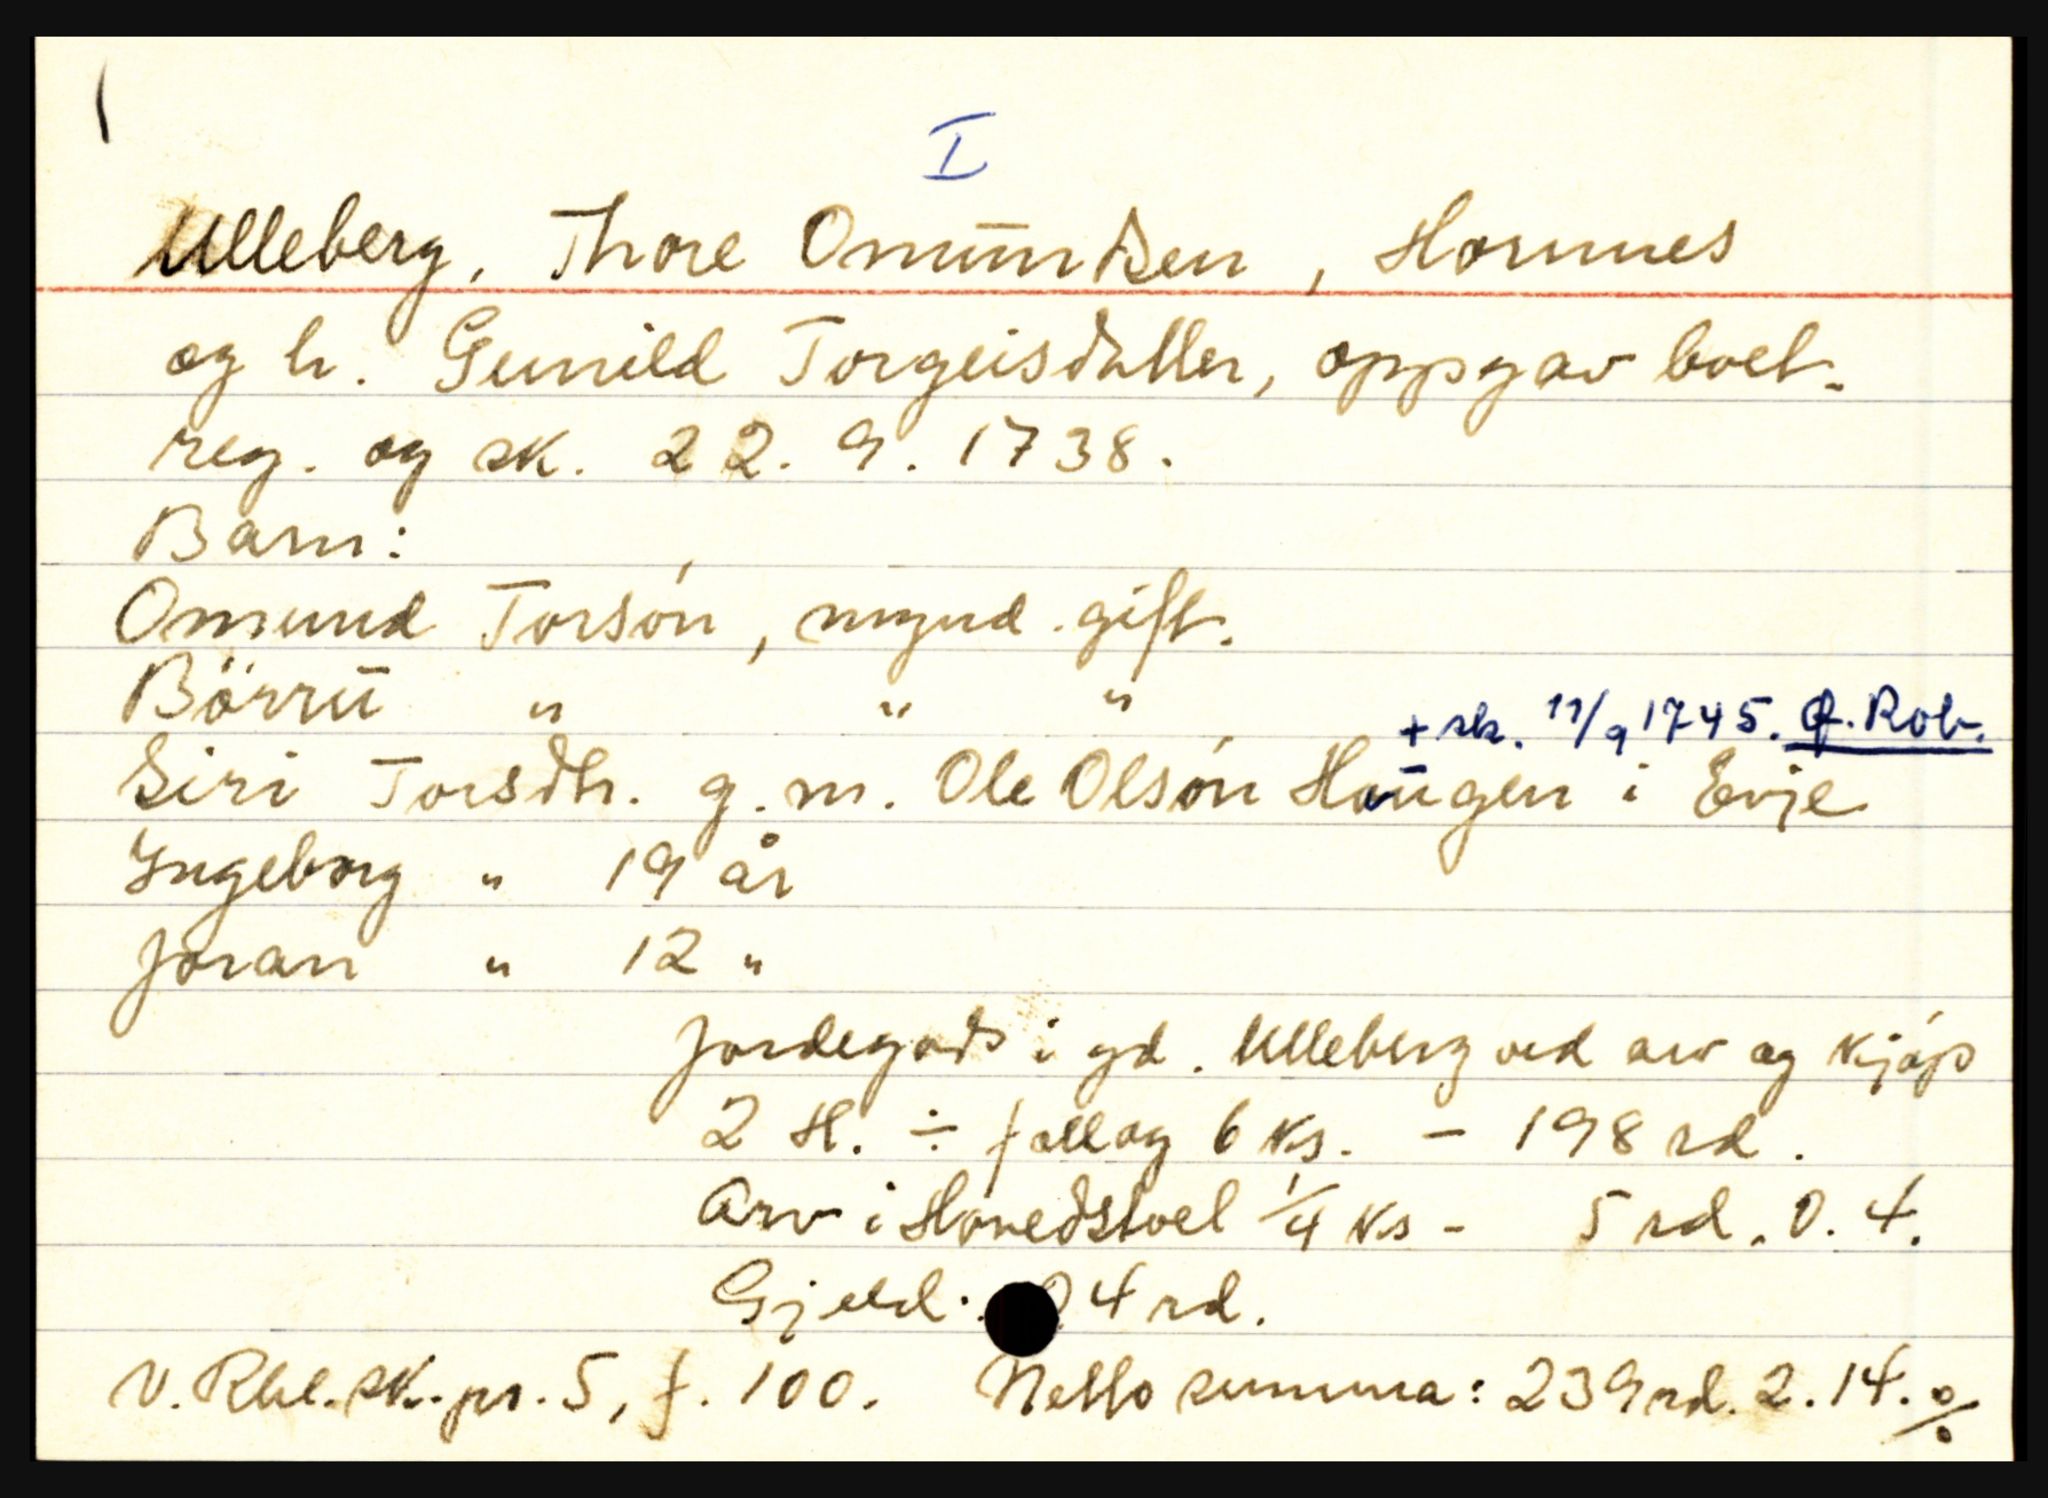 I
Ulleberg, Thore Omundsen, Hornnes
og h. Gunild Torgeisdatter, oppgav boet.
reg. og sk. 22. 9. 1738.
Barn:
Omund Torsón, mynd. gift.
Börru " " "
+ sk. 11/9 1745. Q. Rob.
Siri Torsdtr. g. m. Ole Olsón Haugen i Evje
Ingeborg " 19 år
Joran " 12 "
Jordegods i gd. Ulleberg ved arv og kjóp
2 H. ÷ fallag 6 ks. - 198 rd.
Arv i Hovedstoel 1/4 ks - 5 rd. 0. 4.
Gjeld: 4 rd.
V. Rbl. sk. pr. 5, f. 100. Netto summa: 239 rd. 2. 14. %